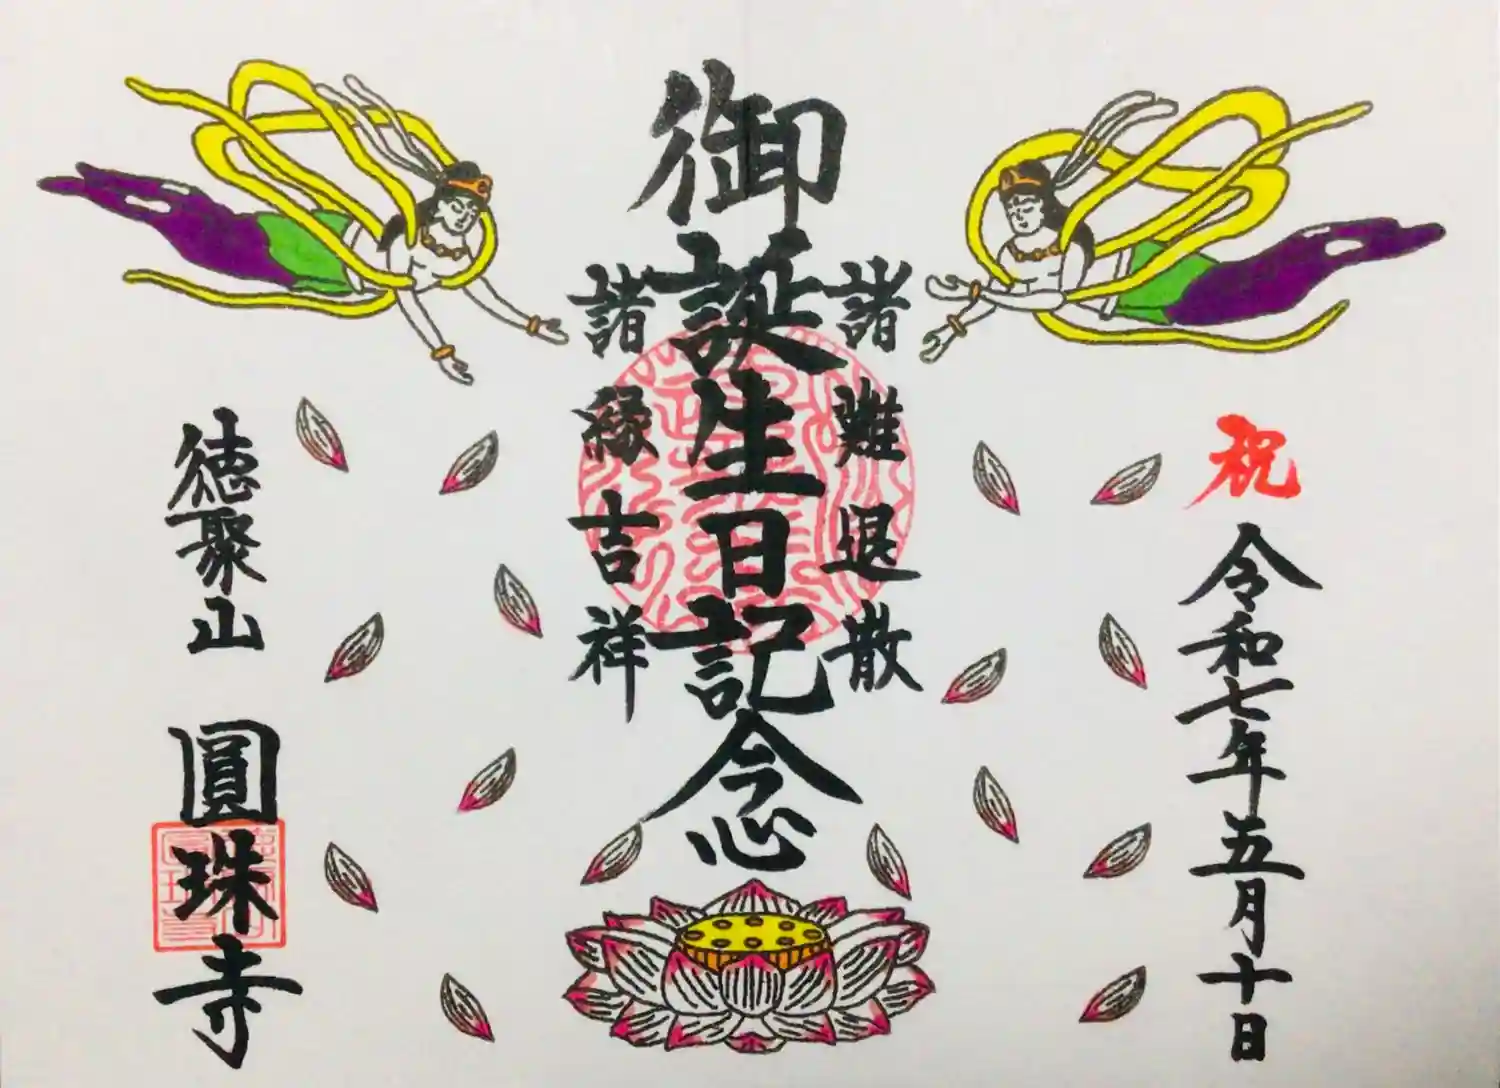 祝
令和七年五月十日
諸難退散
御誕生日記念
諸縁吉祥
徳聚山
圓珠寺